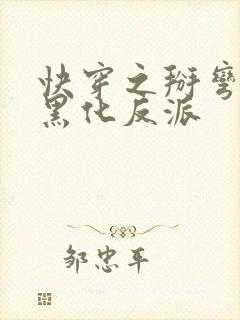 快穿之掰弯
黑化反派
邹忠平